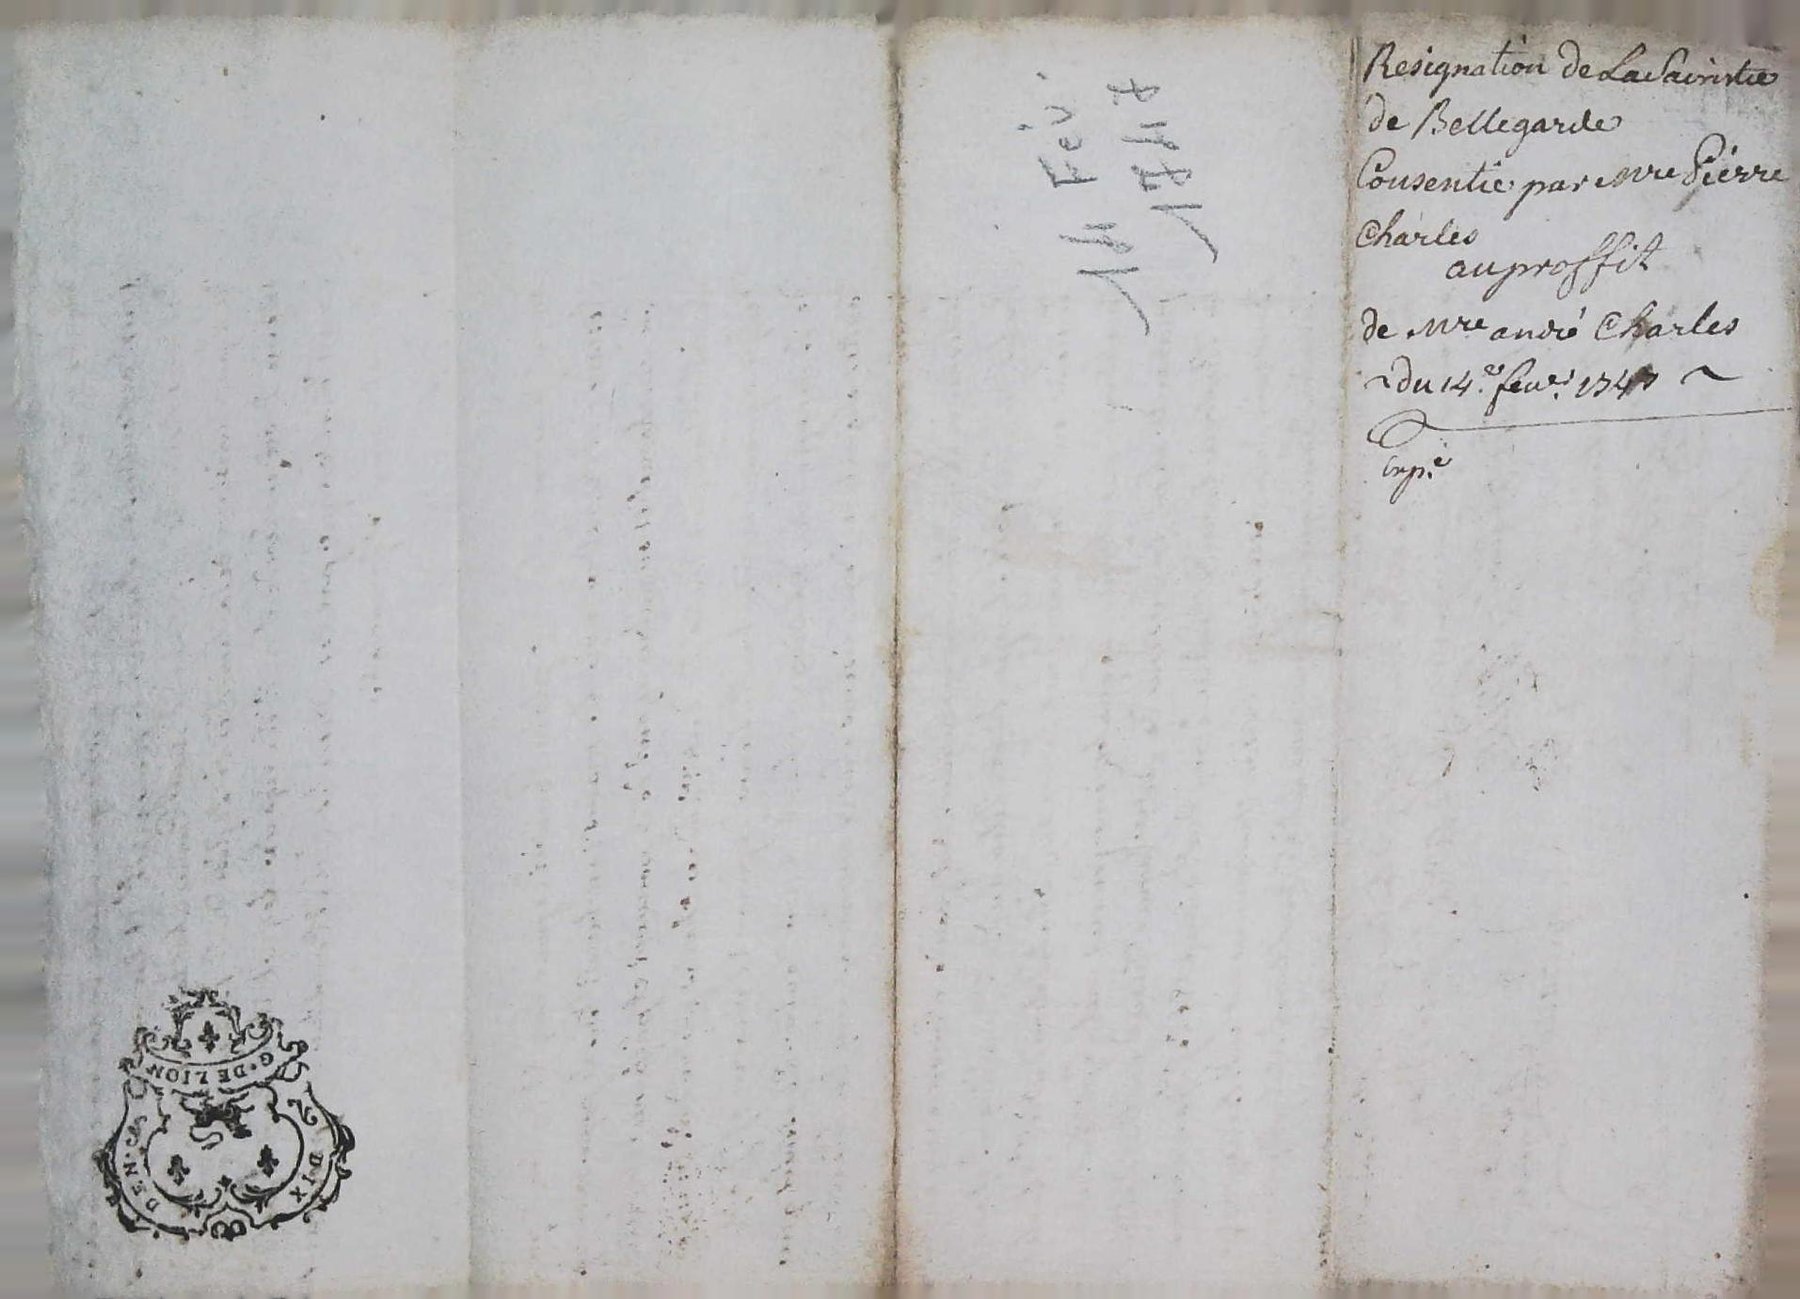 Resignation de La Sacristie
de Bellegarde
Consentie par Mre Pierre
Charles
au proffit
de Mre andré Charles
~ du 14e feur. 1747 ~
Exp.é
14 Fév.
1747
G. DE LION
DEN. DIX